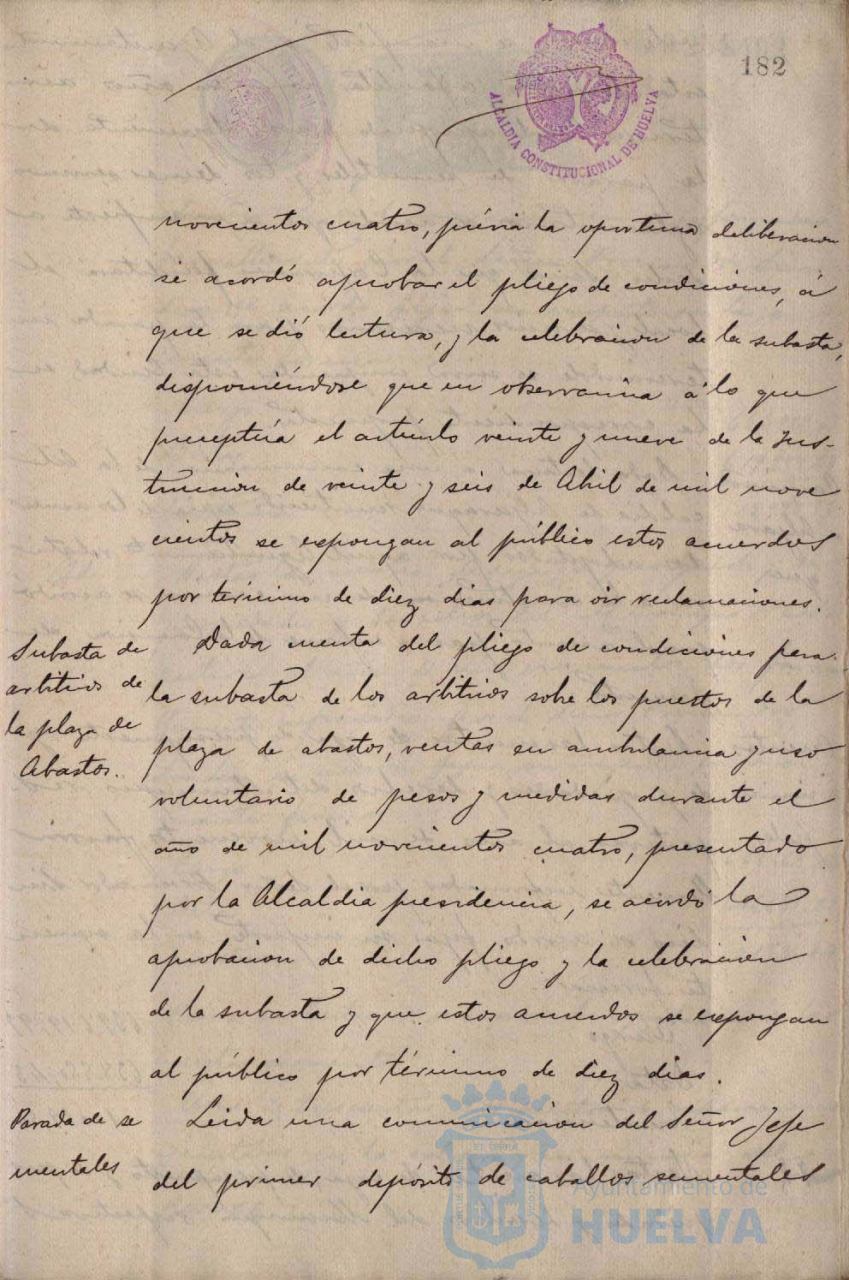 182
ALCALDIA CONSTITUCIONAL DE HUELVA
novecientos cuatro, prévia la oportuna deliberacion
se acordó aprobar el pliego de condiciones, á
que se dió lectura, y la celebracion de la subasta,
disponiéndose que en observancia á lo que
preceptúa el artículo veinte y nueve de la Ins-
truccion de veinte y seis de Abril de mil nove
cientos se expongan al público estos acuerdos
por término de diez dias para oir reclamaciones.
Subasta de
arbitrios de
la plaza de
Abastos.
Dada cuenta del pliego de condiciones para
la subasta de los arbitrios sobre los puestos de la
plaza de abastos, ventas en ambulancia y uso
voluntario de pesos y medidas durante el
año de mil novecientos cuatro, presentado
por la Alcaldia presidencia, se acordó la
aprobacion de dicho pliego y la celebracion
de la subasta y que estos acuerdos se expongan
al público por término de diez dias.
Parada de se
mentales
Leida una comunicacion del Señor Jefe
del primer depósito de caballos sementales
Ayuntamiento de
HUELVA